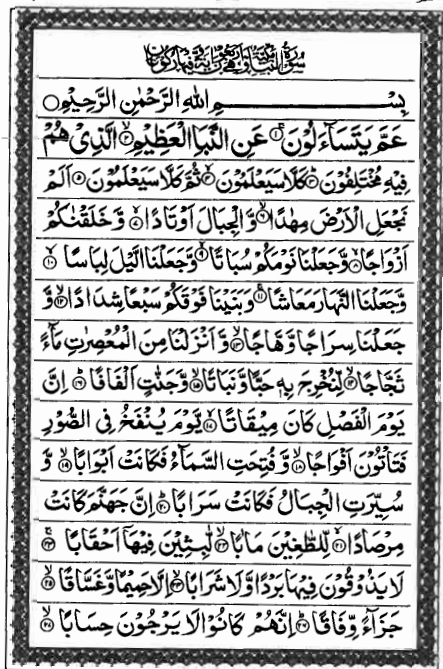 سُوْرَةُ النَّبَاِ مَكِّيَّةٌ وَّهِيَ اَرْبَعُوْنَ اٰيَةً وَّفِيْهَا رُكُوْعَانِ
بِسْمِ اللهِ الرَّحْمٰنِ الرَّحِيْمِ
عَمَّ يَتَسَآءَلُوْنَ ۝۱ عَنِ النَّبَاِ الْعَظِيْمِ ۝۲ الَّذِيْ هُمْ
فِيْهِ مُخْتَلِفُوْنَ ۝۳ كَلَّا سَيَعْلَمُوْنَ ۝۴ ثُمَّ كَلَّا سَيَعْلَمُوْنَ ۝۵ اَلَمْ
نَجْعَلِ الْاَرْضَ مِهٰدًا ۝۶ وَّالْجِبَالَ اَوْتَادًا ۝۷ وَّخَلَقْنٰكُمْ
اَزْوَاجًا ۝۸ وَّجَعَلْنَا نَوْمَكُمْ سُبَاتًا ۝۹ وَّجَعَلْنَا الَّيْلَ لِبَاسًا ۝۱۰
وَّجَعَلْنَا النَّهَارَ مَعَاشًا ۝۱۱ وَّبَنَيْنَا فَوْقَكُمْ سَبْعًا شِدَادًا ۝۱۲ وَّ
جَعَلْنَا سِرَاجًا وَّهَّاجًا ۝۱۳ وَّاَنْزَلْنَا مِنَ الْمُعْصِرٰتِ مَآءً
ثَجَّاجًا ۝۱۴ لِّنُخْرِجَ بِهٖ حَبًّا وَّنَبَاتًا ۝۱۵ وَّجَنّٰتٍ اَلْفَافًا ۝۱۶ اِنَّ
يَوْمَ الْفَصْلِ كَانَ مِيْقَاتًا ۝۱۷ يَّوْمَ يُنْفَخُ فِى الصُّوْرِ
فَتَاْتُوْنَ اَفْوَاجًا ۝۱۸ وَّفُتِحَتِ السَّمَآءُ فَكَانَتْ اَبْوَابًا ۝۱۹ وَّ
سُيِّرَتِ الْجِبَالُ فَكَانَتْ سَرَابًا ۝۲۰ اِنَّ جَهَنَّمَ كَانَتْ
مِرْصَادًا ۝۲۱ لِّلطّٰغِيْنَ مَاٰبًا ۝۲۲ لّٰبِثِيْنَ فِيْهَآ اَحْقَابًا ۝۲۳
لَا يَذُوْقُوْنَ فِيْهَا بَرْدًا وَّلَا شَرَابًا ۝۲۴ اِلَّا حَمِيْمًا وَّغَسَّاقًا ۝۲۵
جَزَآءً وِّفَاقًا ۝۲۶ اِنَّهُمْ كَانُوْا لَا يَرْجُوْنَ حِسَابًا ۝۲۷